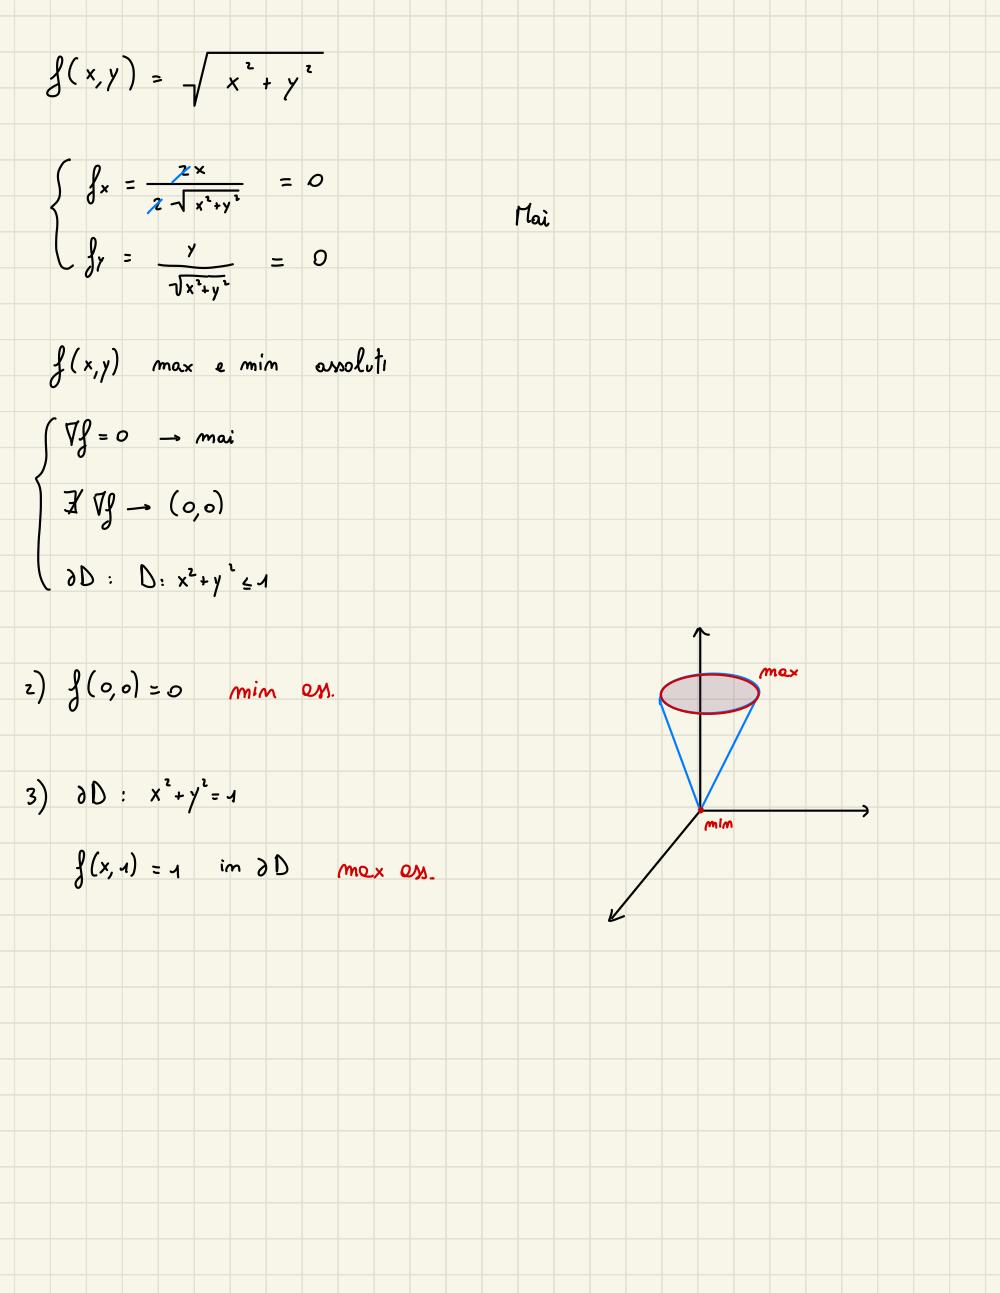 f(x,y) = √(x² + y²)
{ fx = 2x / 2√(x²+y²) = 0
Mai
fy = y / √(x²+y²) = 0
f(x,y) max e min assoluti
{ ∇f = 0 → mai
∄ ∇f → (0,0)
∂D : D: x²+y² ≤ 1
2) f(0,0) = 0 min ass.
max
min
3) ∂D : x²+y² = 1
f(x,1) = 1 in ∂D max ass.